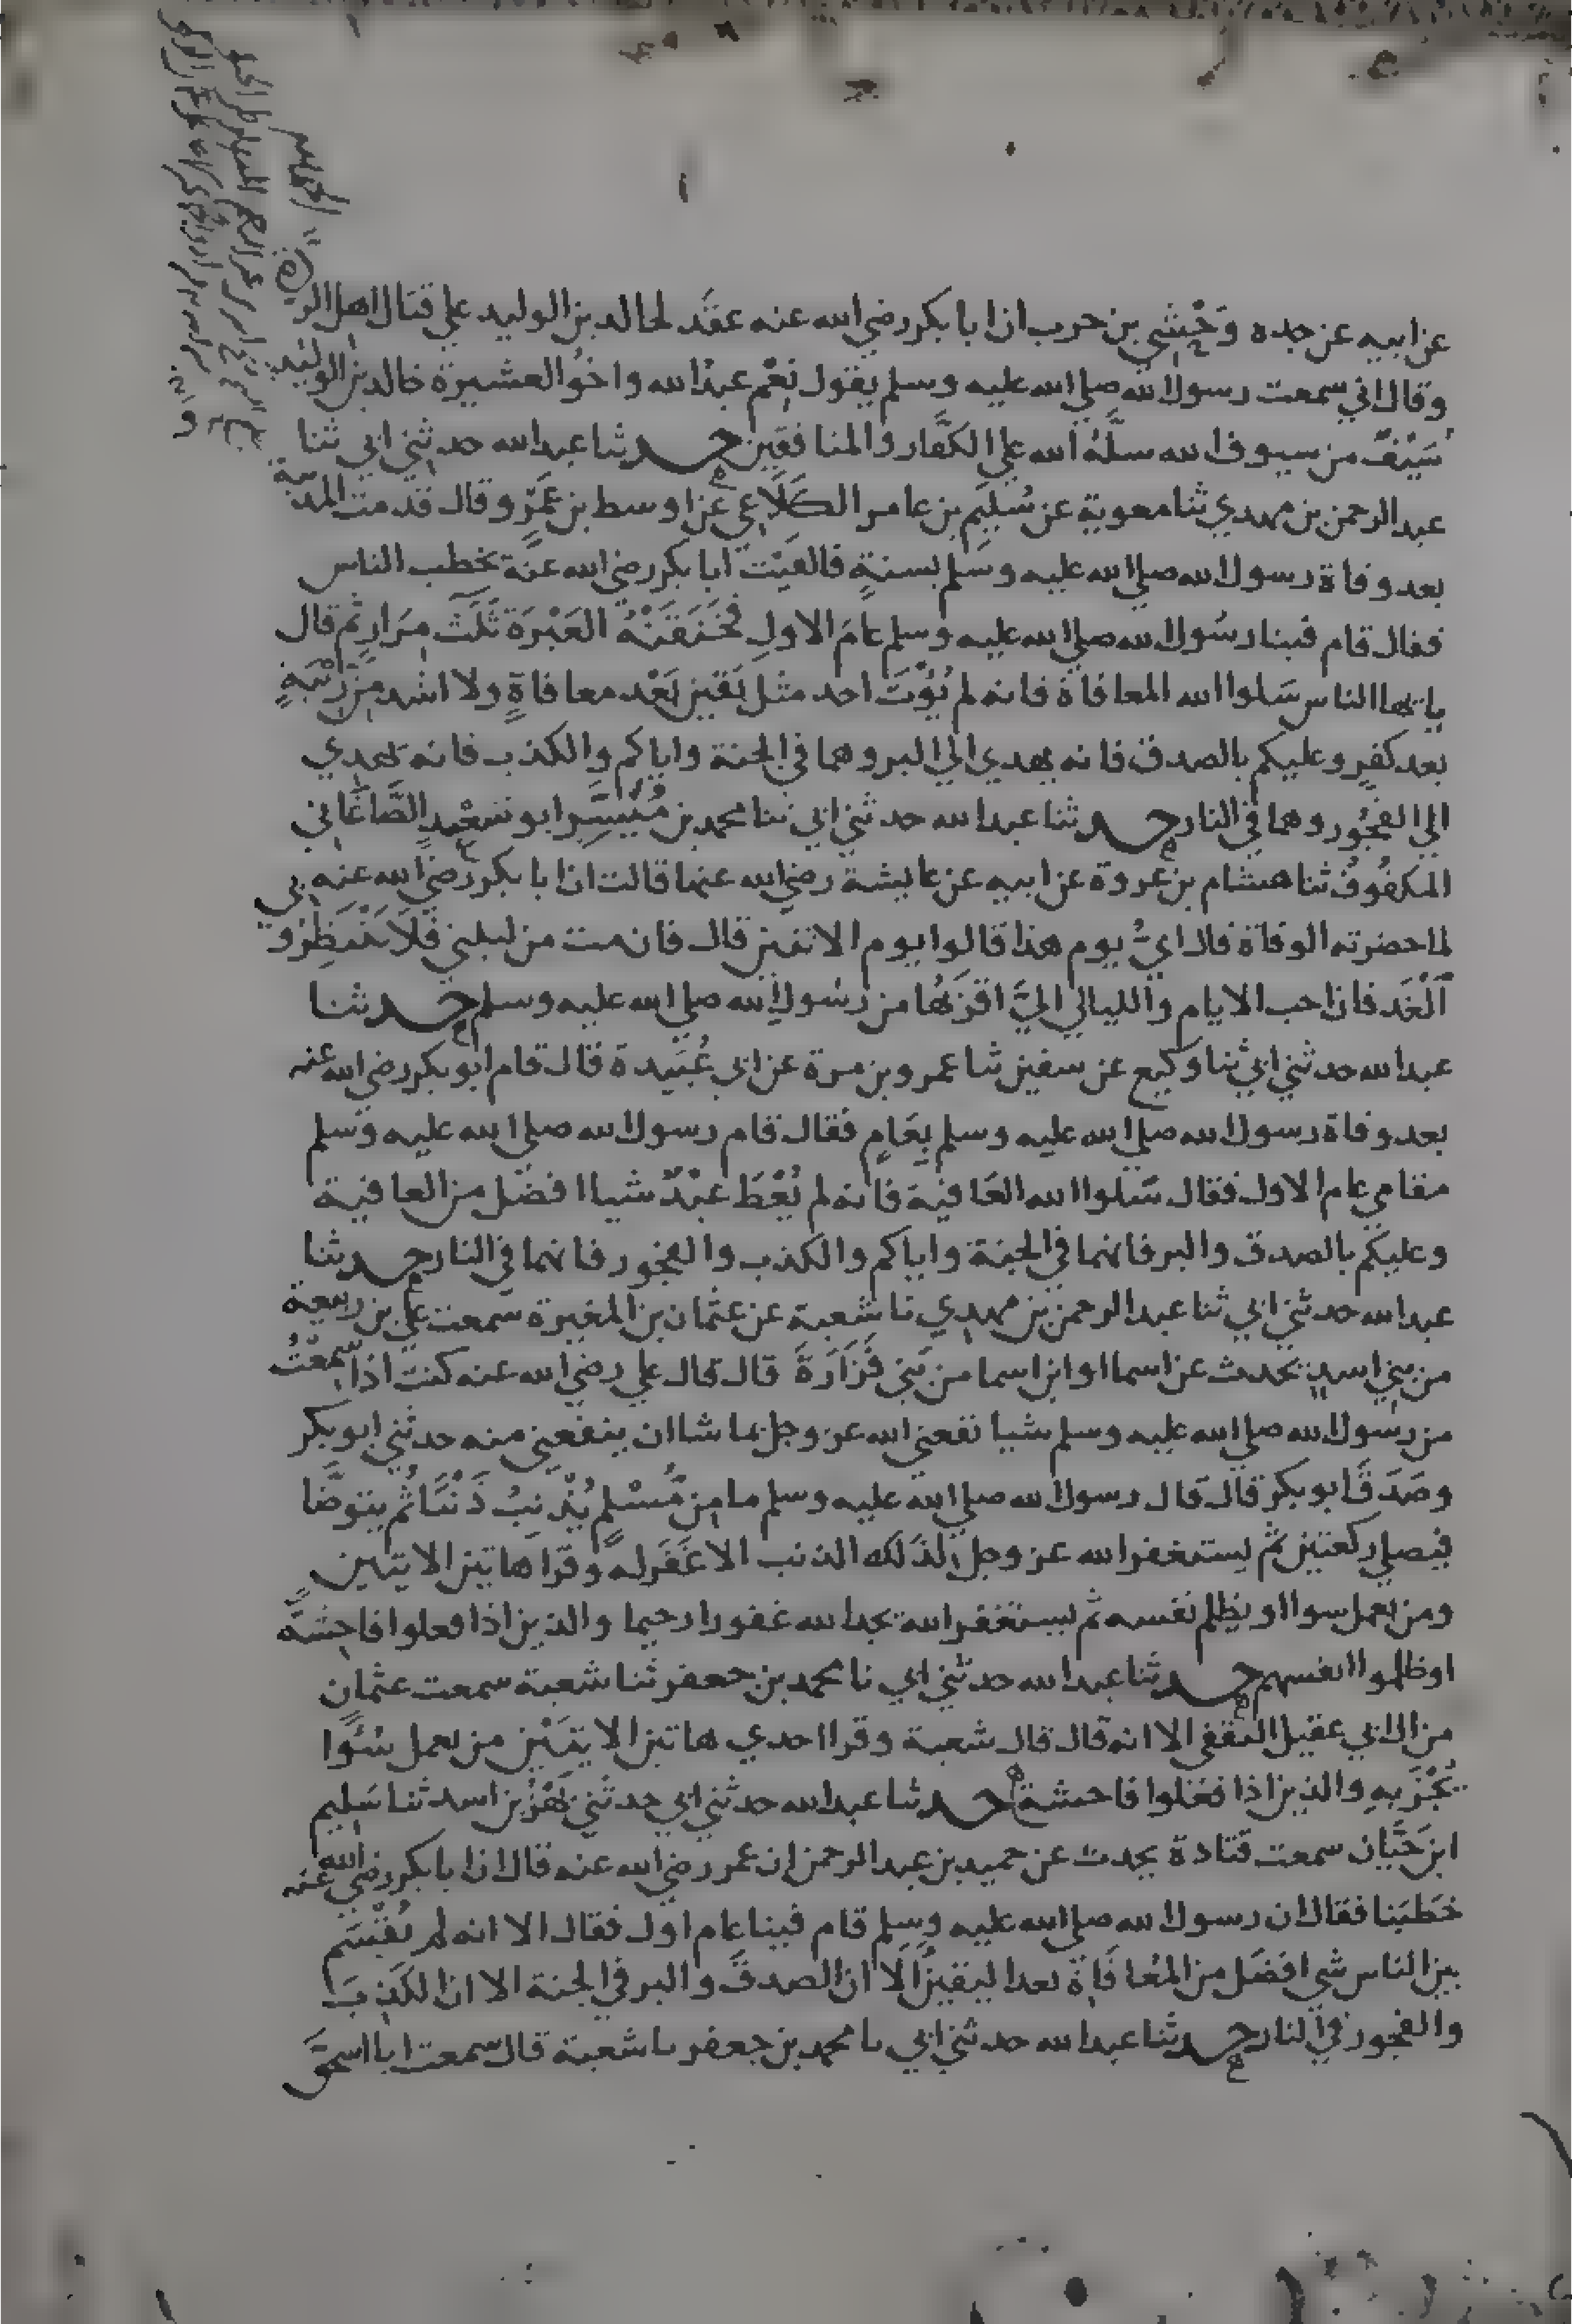 عن ابيه عن جده وَحْشي بن حرب ان ابا بكر رضي الله عنه عقَد لخالد بن الوليد علي قتال اهل الردة
وقال اني سمعت رسول الله صلي الله عليه وسلم يقول نِعْم عبدُ الله واخُو العشيرة خالد بن الوليد
سَيْفٌ من سيوف الله سلَّهُ الله علي الكفَّار والمنافقين حدثنا عبد الله حدثني ابي ثنا
عبد الرحمن بن مهدي ثنا معوية عن سُلَيم بن عامر الكَلَاعي عن اوسط بن عَمْرو قال قدمت المدينة
بعد وفاة رسول الله صلي الله عليه وسَلم بسنةٍ فالفَيْت ابا بكر رضي الله عنه يخطب الناس
فقال قام فينا رسُول الله صلي الله عليه وسلم عامَ الاولِ فخَنَقَتْهُ العَبْرَة ثَلَثَ مِرَارٍ ثم قال
يا يها الناس سَلوا الله المعافاة فانه لم يُؤْتَ احد مثل يَقين بَعْد معافاةٍ ولا اشد مِنْ رِيْبَةٍ
بعد كفرٍ وعليكم بالصدق فانه يهدي الي البر وهما في الجنة واياكم والكذب فانه يهدي
الي الفجُور وهما في النار حدثنا عبد الله حدثني ابي ثنا محمد بن مُيَسَّر ابو سَعْيدٍ الصَّاغَاني
المكفُوفُ ثنا هشام بن عروة عن ابيه عن عايشة رضي الله عنها قالت ان ابا بكر رضي الله عنه
لما حضرته الوفاة قال ايُّ يوم هذا قالوا يوم الاثنين قال فان مت من ليلتي فَلَا تَنْتَظِرُو بي
الْغَد فان احب الايام والليالي اليَّ اقرَبُها من رسُول الله صلي الله عليه وسلم حدثنا
عبد الله حدثني ابي ثنا وكيع عن سفين ثنا عمرو بن مرة عن ابي عُبَيْدة قال قام ابو بكر رضي الله عنه
بعد وفاة رسول الله صلي الله عليه وسلم بِعَامٍ فقال قام رسول الله صلي الله عليه وسلم
مقامي عام الاول فقال سَلوا الله العَافية فانه لم يُعْطَ عبْدٌ شيا افضَل من العافية
وعليكم بالصدق والبر فانهما في الجنة واياكم والكذب والفجور فانهما في النار حدثنا
عبد الله حدثني ابي ثنا عبد الرحمن بن مهدي نا شعبة عن عثمان بن المغيرة سمعت علي بن ربيعة
من بني اسدٍ يحدث عن اسما او ابن اسما من بَني فَزَارَةَ قال قال علي رضي الله عنه كنت اذا سمعْتُ
من رسُول الله صلي الله عليه وسلم شيا نفعني الله عز وجل بما شا ان ينفعني منه حدثني ابو بكر
وصَدَقَ ابو بكر قال قال رسول الله صلي الله عليه وسلم ما مِن مُسْلمٍ يُذْنِبُ ذَنْبًا ثم يتوضَّا
فيصلي ركعتين ثم يستغفر الله عز وجل لذلك الذنب الا غَفَر له وقرا هاتين الايتين
ومن يعمل سوا او يظلم نفسه ثم يستغفر الله يجد الله غفورا رحيما والذين اذا فعلوا فاحِشَةً
او ظلموا انفسهم حدثنا عبد الله حدثني ابي نا محمد بن جعفر ثنا شعبة سمعت عثمان
من ال ابي عقيل الثقفي الا انه قال قال شعبة وقرا احدي هاتين الايتَيْن من يعمل سُوًا
يُجْزَ بهِ والذين اذا فعَلوا فاحشة حدثنا عبد الله حدثني ابي حدثني بَهْزُ بن اسد ثنا سَليم
ابن حَيَّان سمعت قتادة يحدث عن حميد بن عبد الرحمن ان عمر رضي الله عنه قال ان ابا بكر رضي الله عنه
خطبَنا فقال ان رسول الله صلي الله عليه وسلم قام فينا عام اول فقال الا انه لم يُقْسَم
بين الناس شي افضَل من المُعَافَاة بعد اليقين اَلَا ان الصدقَ والبر في الجنة الا ان الكَذِبَ
والفجور في النار حدثنا عبد الله حدثني ابي نا محمد بن جعفر نا شعبة قال سمعت ابا اسحق